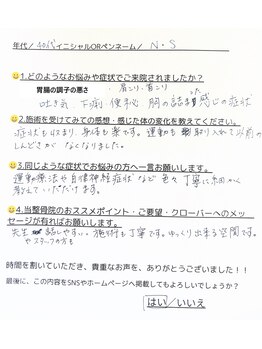 年代／40代 イニシャルORペンネーム／ N・S
1.どのようなお悩みや症状でご来院されましたか？
胃腸の調子の悪さ 肩こり・首こり
吐き気 下痢・便秘 胸の詰まった感じの症状
2.施術を受けてみての感想・感じた体の変化を教えてください。
症状も収まり、身体も楽です。運動も取り入れて以前の
しんどさがなくなりました。
3.同じような症状でお悩みの方へ一言お願いします。
運動療法や自律神経症状など色々丁寧に細かく
教えていただけます。
4.当整骨院のおススメポイント・ご要望・クローバーへのメッ
セージが有ればお願いします。
先生 話しやすい。施術も丁寧です。ゆっくり出来る空間です。
やスタッフの方も
時間を割いていただき、貴重なお声を、ありがとうございました！！
最後に、この内容をSNSやホームページへ掲載してもよろしいでしょうか？
はい／いいえ